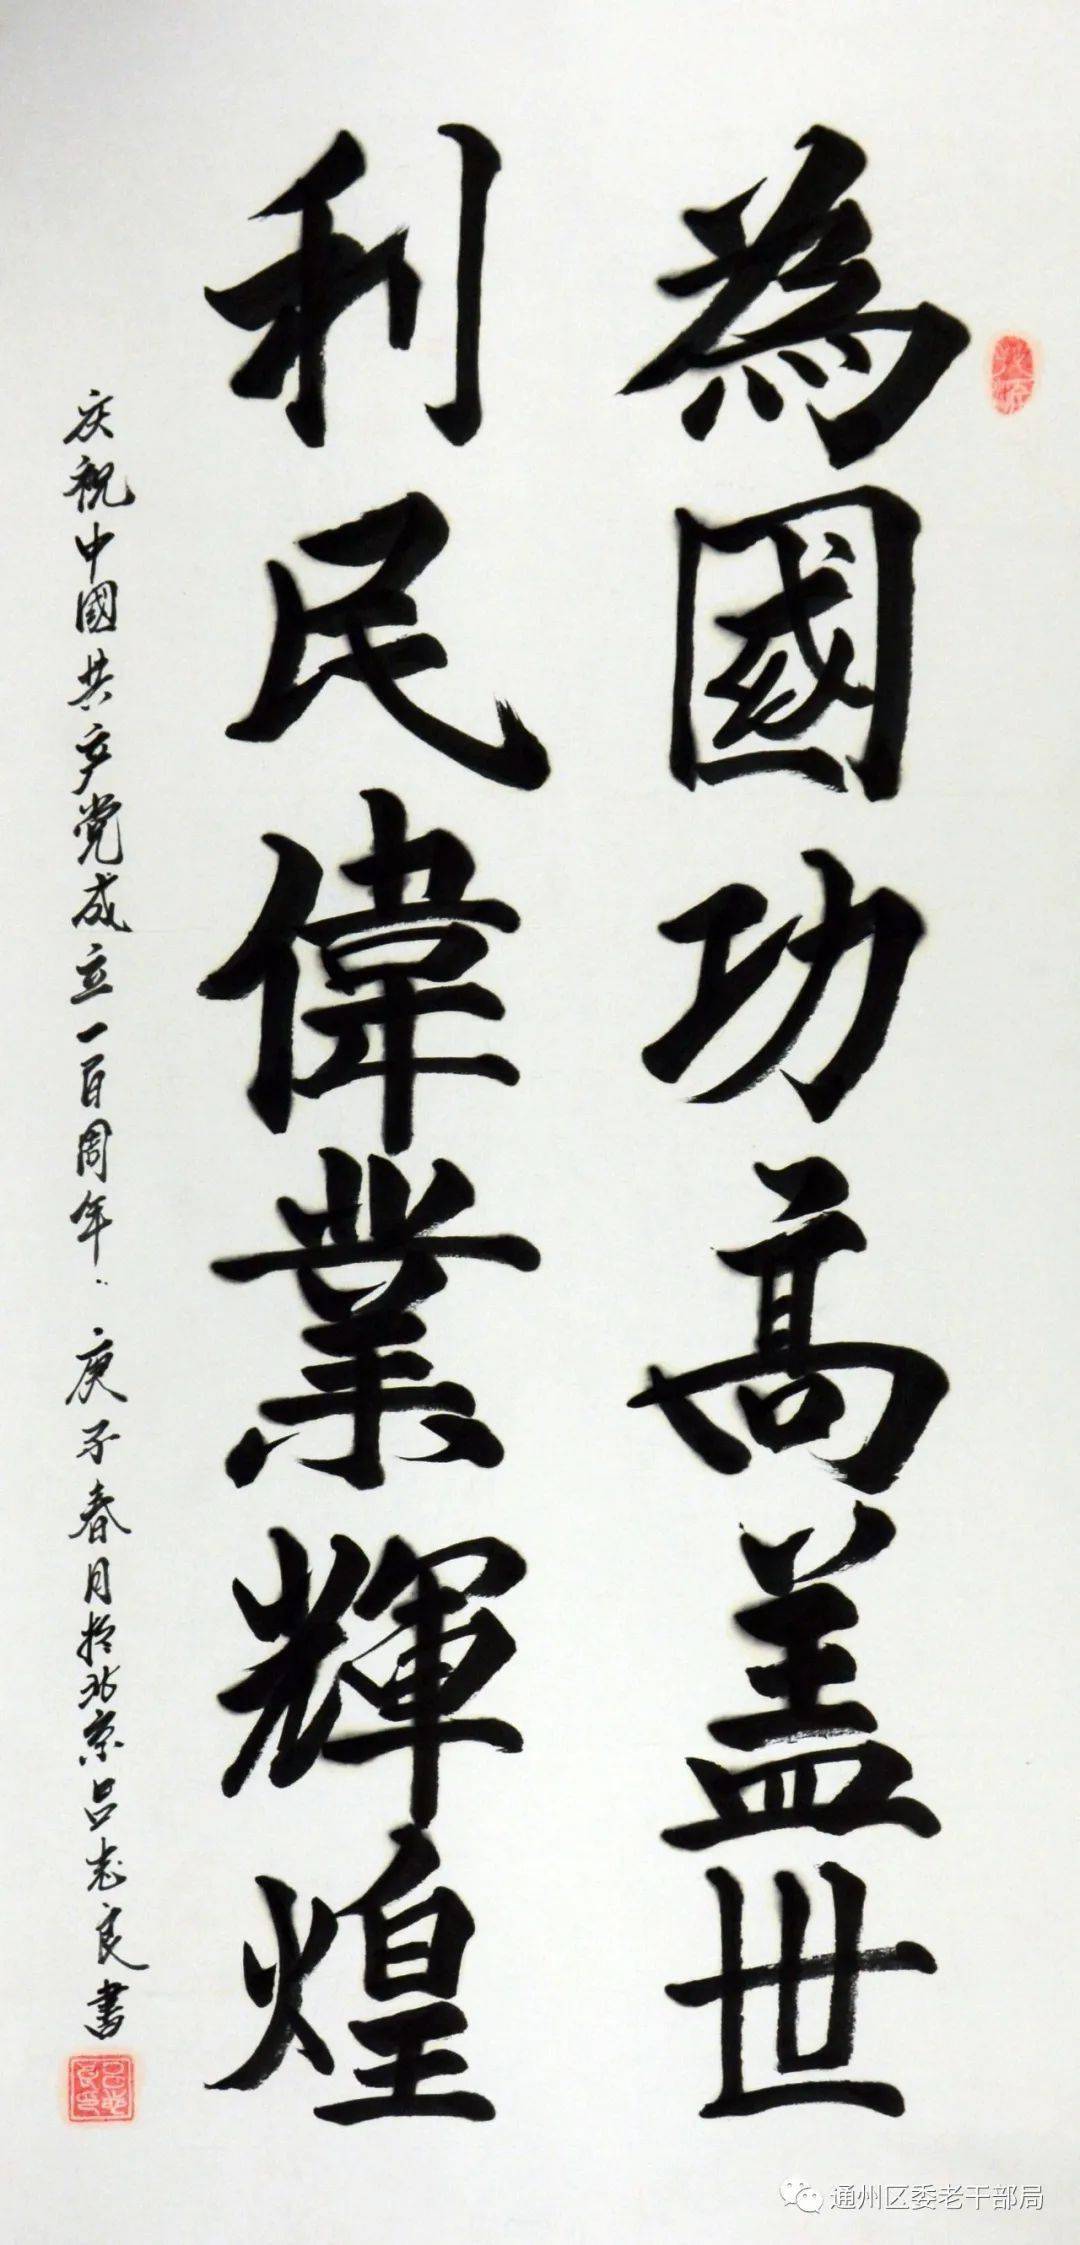 為國功高盖世
利民偉業輝煌
庆祝中國共产党成立一百周年．庚子春月於北京吕志良書
通州区委老干部局